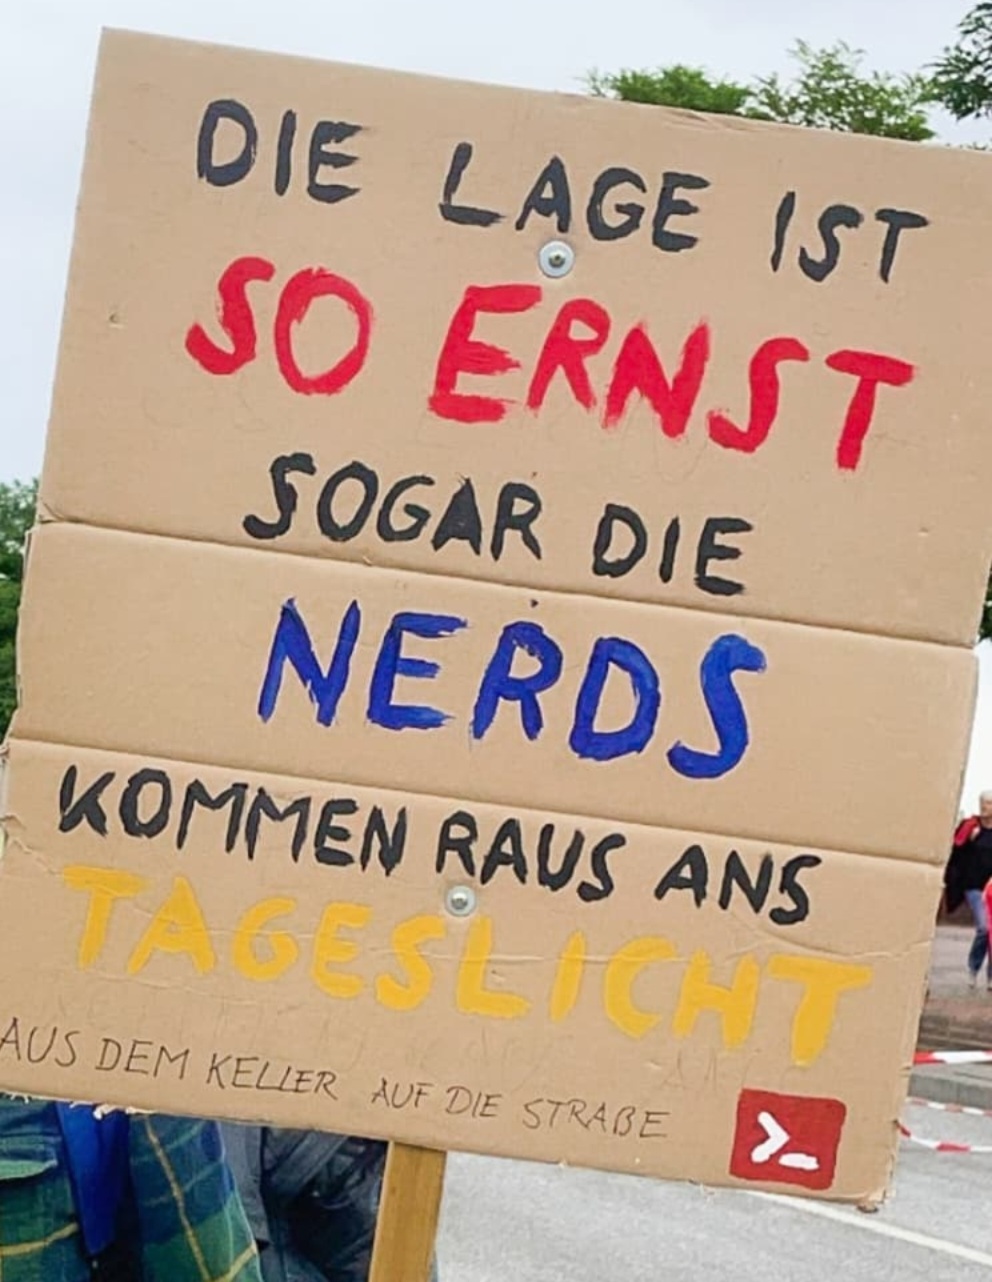 DIE LAGE IST
SO ERNST
SOGAR DIE
NERDS
KOMMEN RAUS ANS
TAGESLICHT
AUS DEM KELLER AUF DIE STRAßE
>_